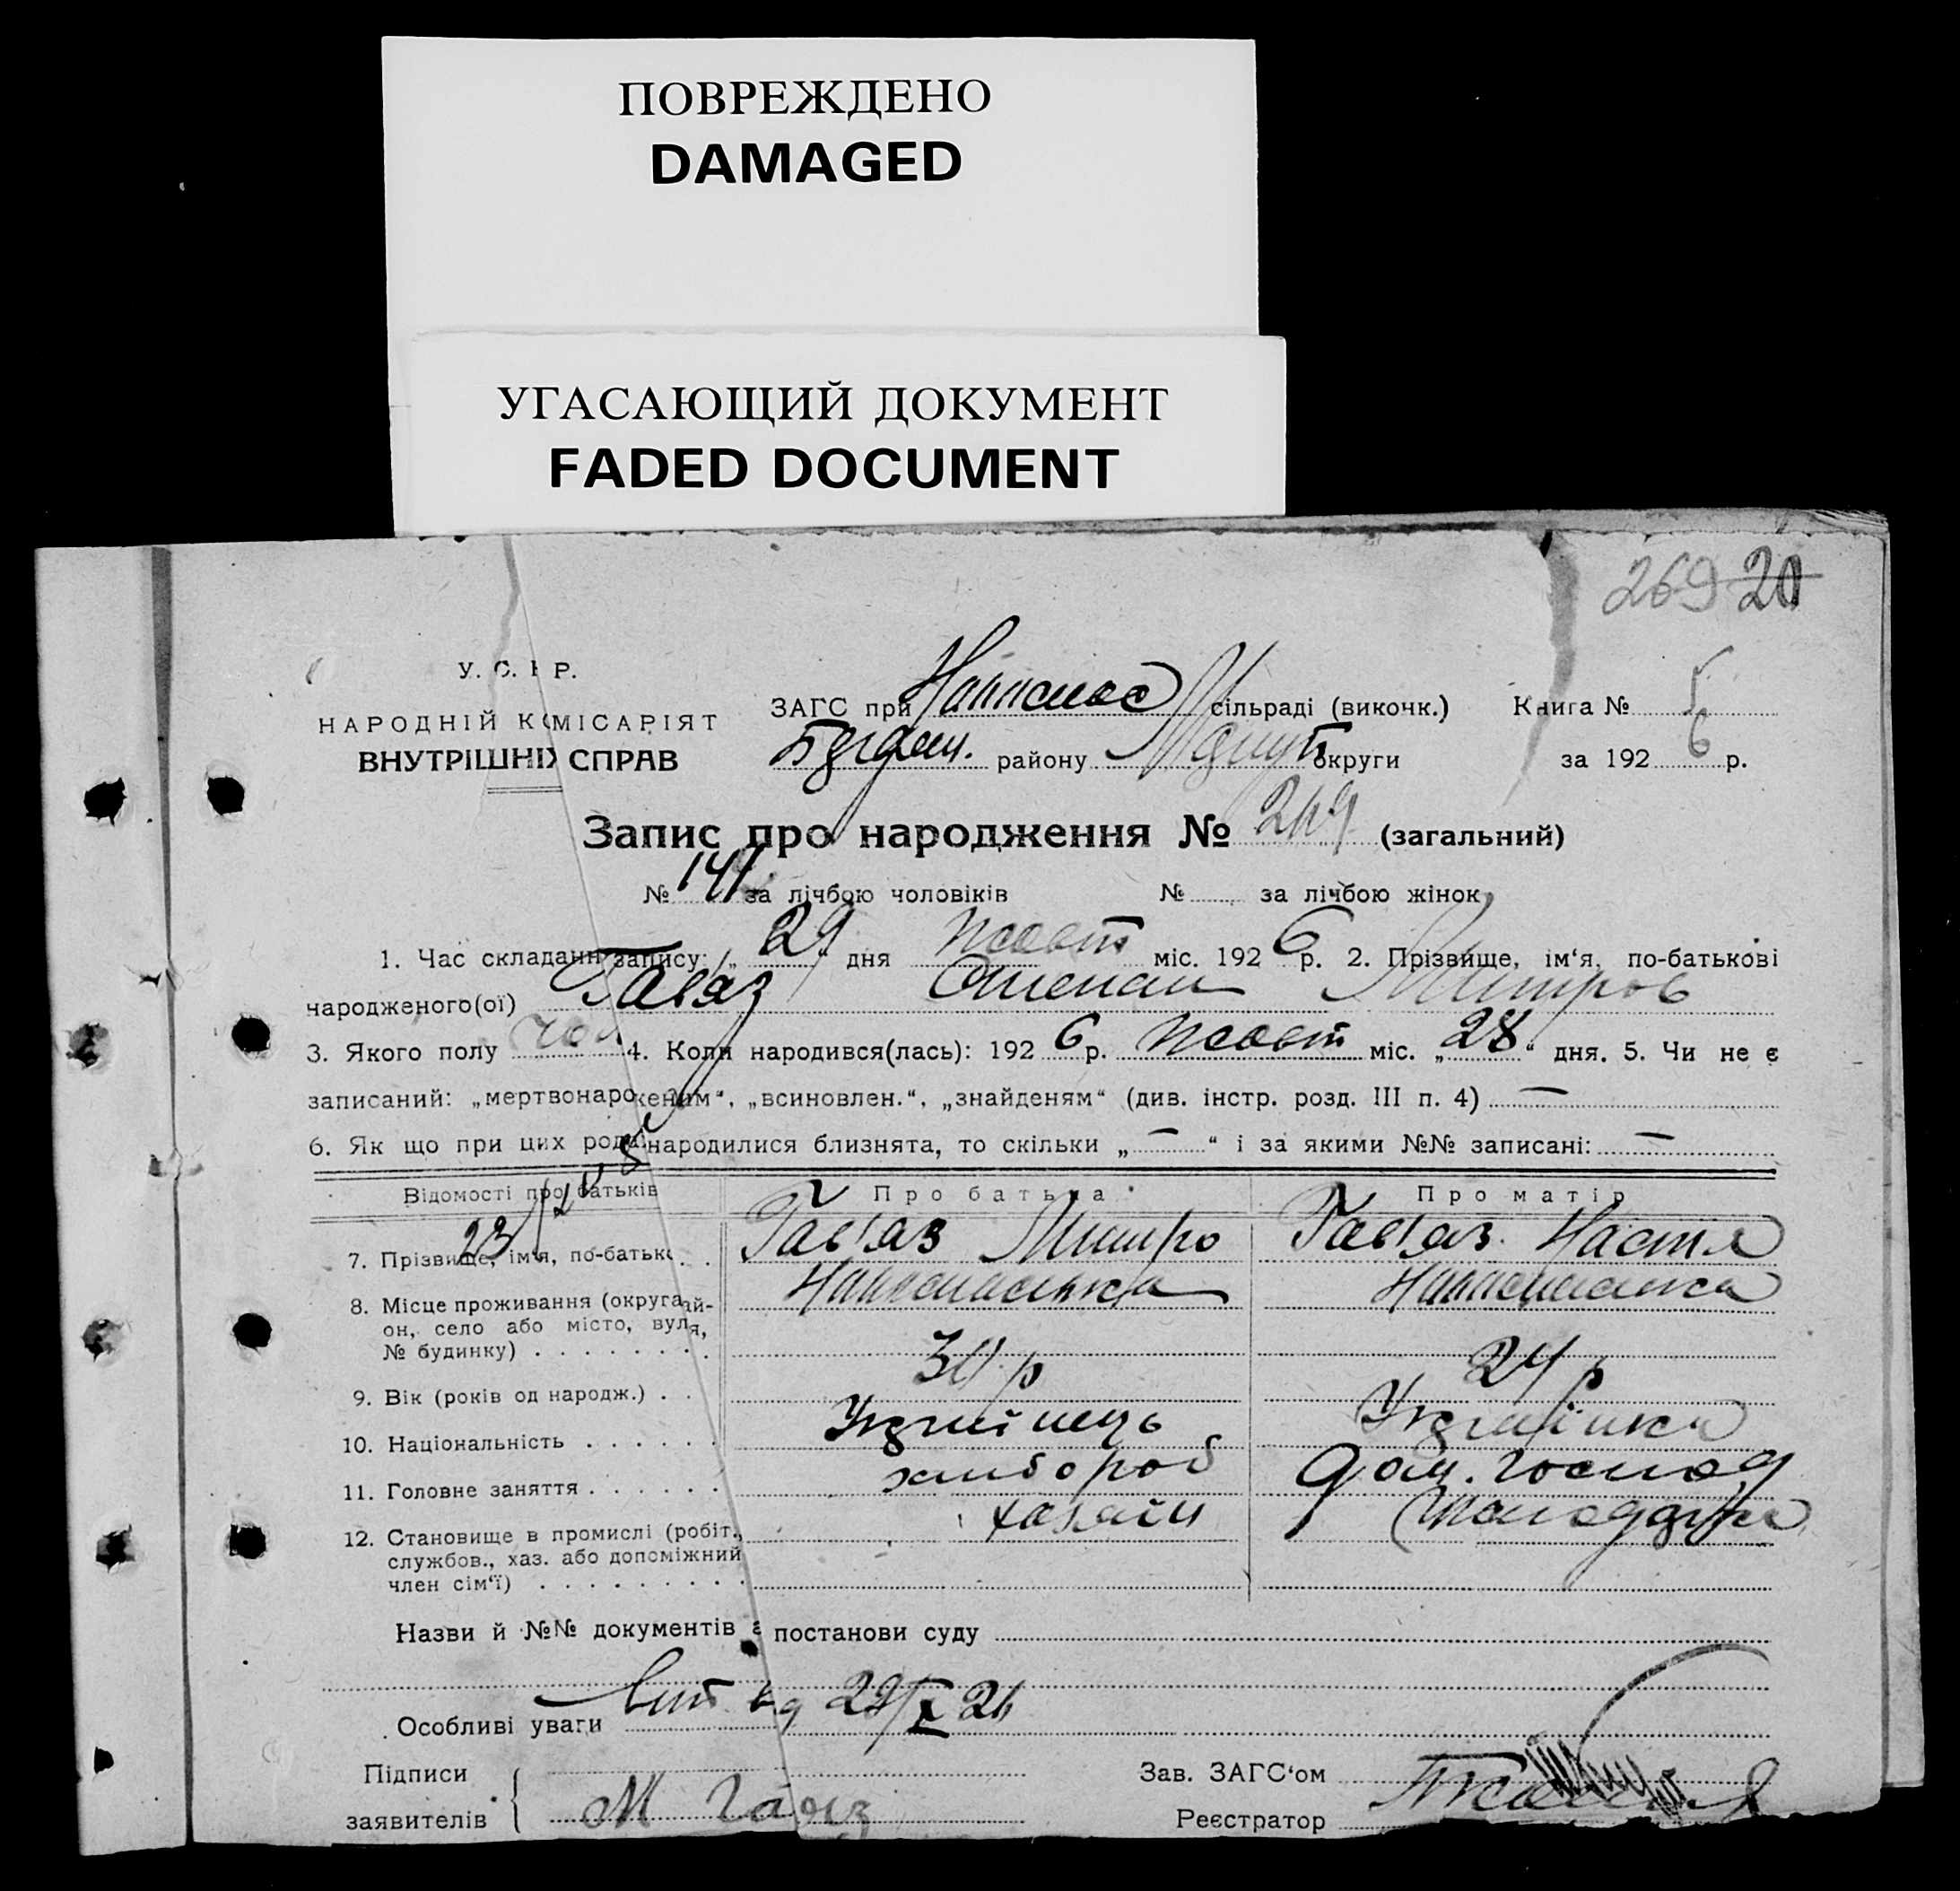 ПОВРЕЖДЕНО
DAMAGED
УГАСАЮЩИЙ ДОКУМЕНТ
FADED DOCUMENT
269 20
У. С. Р.
НАРОДНІЙ КОМІСАРІЯТ
ВНУТРІШНІХ СПРАВ
ЗАГС при сільраді (виконк.) Книга № 5
району округи за 192 6 р.
Запис про народження № 269 (загальний)
№ 141 за лічбою чоловіків № за лічбою жінок
1. Час складанн запису: „ 29 " дня жовт міс. 192 6 р. 2. Прізвище, ім'я, по-батькові
народженого(ої) Гавяз Степан Митров
3. Якого полу чол 4. Коли народився(лась): 192 6 р. жовт міс. „ 28 " дня. 5. Чи не є
записаний: „мертвонарокеним", „всиновлен.", „знайденям" (див. інстр. розд. III п. 4) —
6. Як що при цих род народилися близнята, то скільки „ — " і за якими №№ записані: —
Відомості про батьків Про батька Про матір
7. Прізвище, ім'я, по-батьк . . Гавяз Митро Гавяз Настя
8. Місце проживання (округа ай-
он, село або місто, вул я,
№ будинку) . . . . . . . .
9. Вік (років од народж.) . . 30 р 24 р
10. Національність . . . . . . Українець Українка
11. Головне заняття . . . . . . хлібороб дом. господ
12. Становище в промислі (робіт., хазяїн
службов., хаз. або допоміжний
член сім'ї) . . . . . . . . .
Назви й №№ документів а постанови суду
Особливі уваги 29/X 26
Підписи Зав. ЗАГС'ом
заявителів М Гавяз Реєстратор